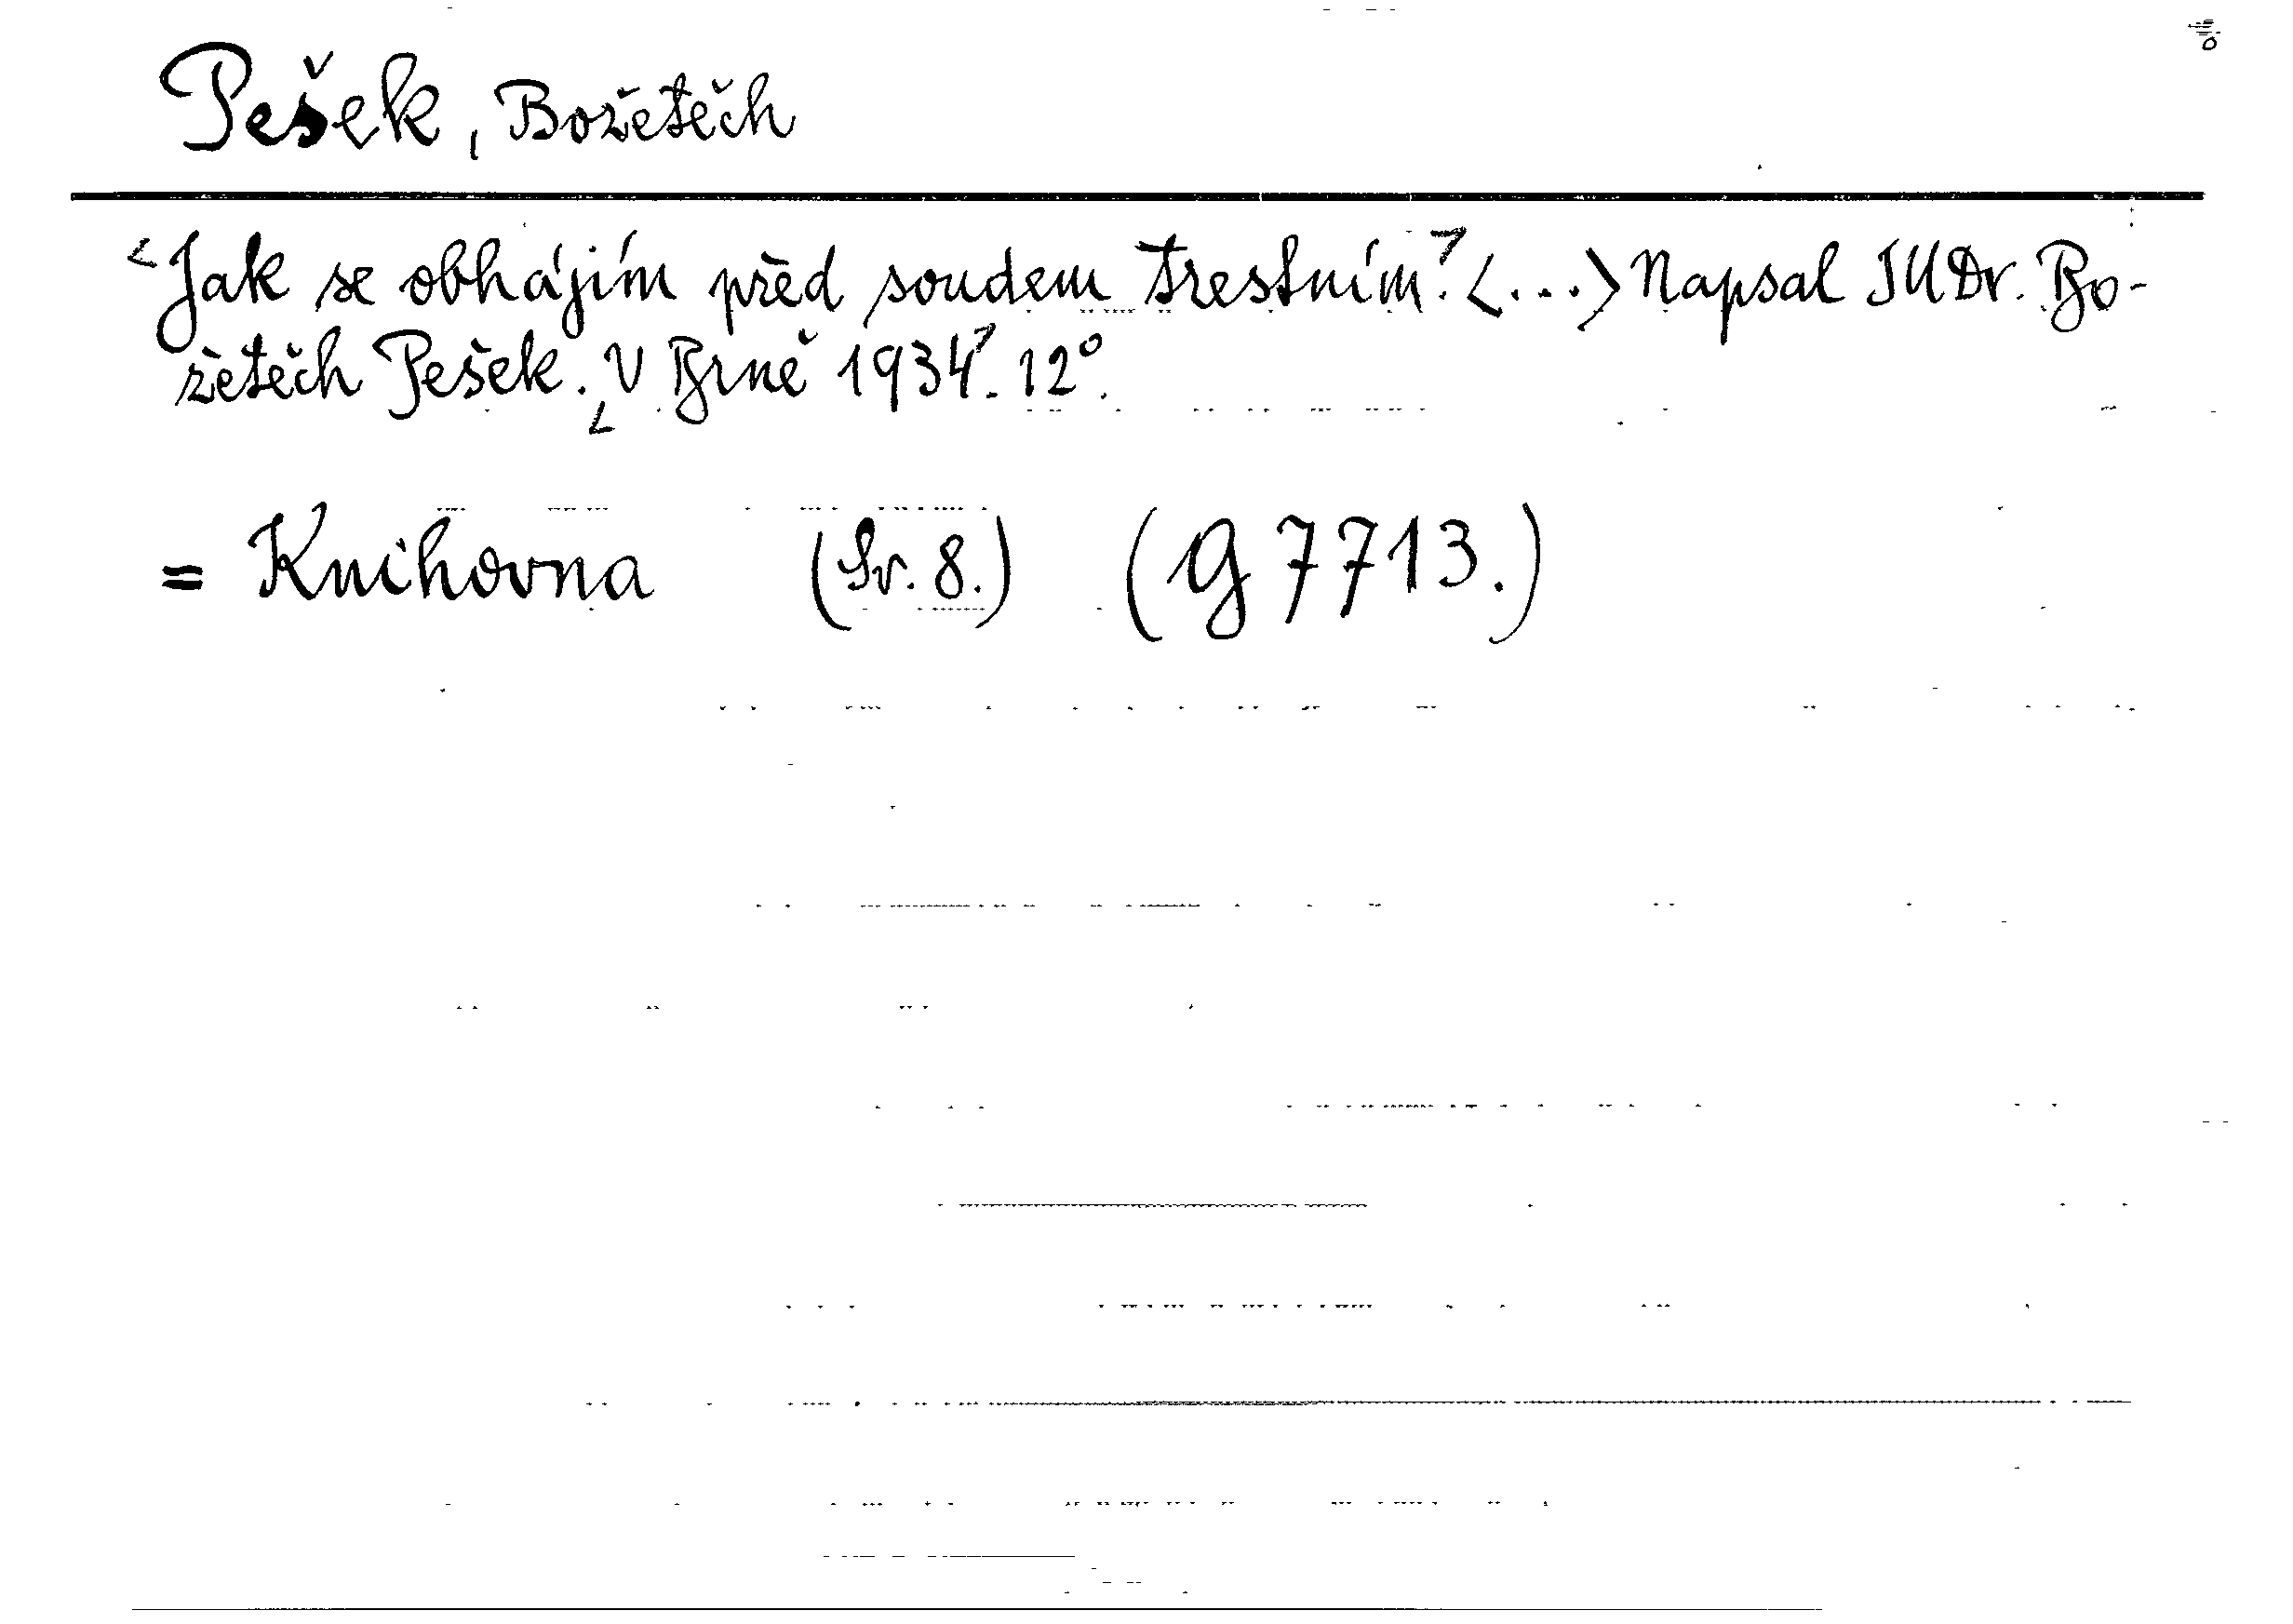 Pešek, Božetěch
<Jak se obhájím před soudem trestním?> <...> Napsal JUDr. Bo-
žetěch Pešek. <V Brně 1934>. 12°.
= Knihovna (Sv. 8.) (G 7713.)